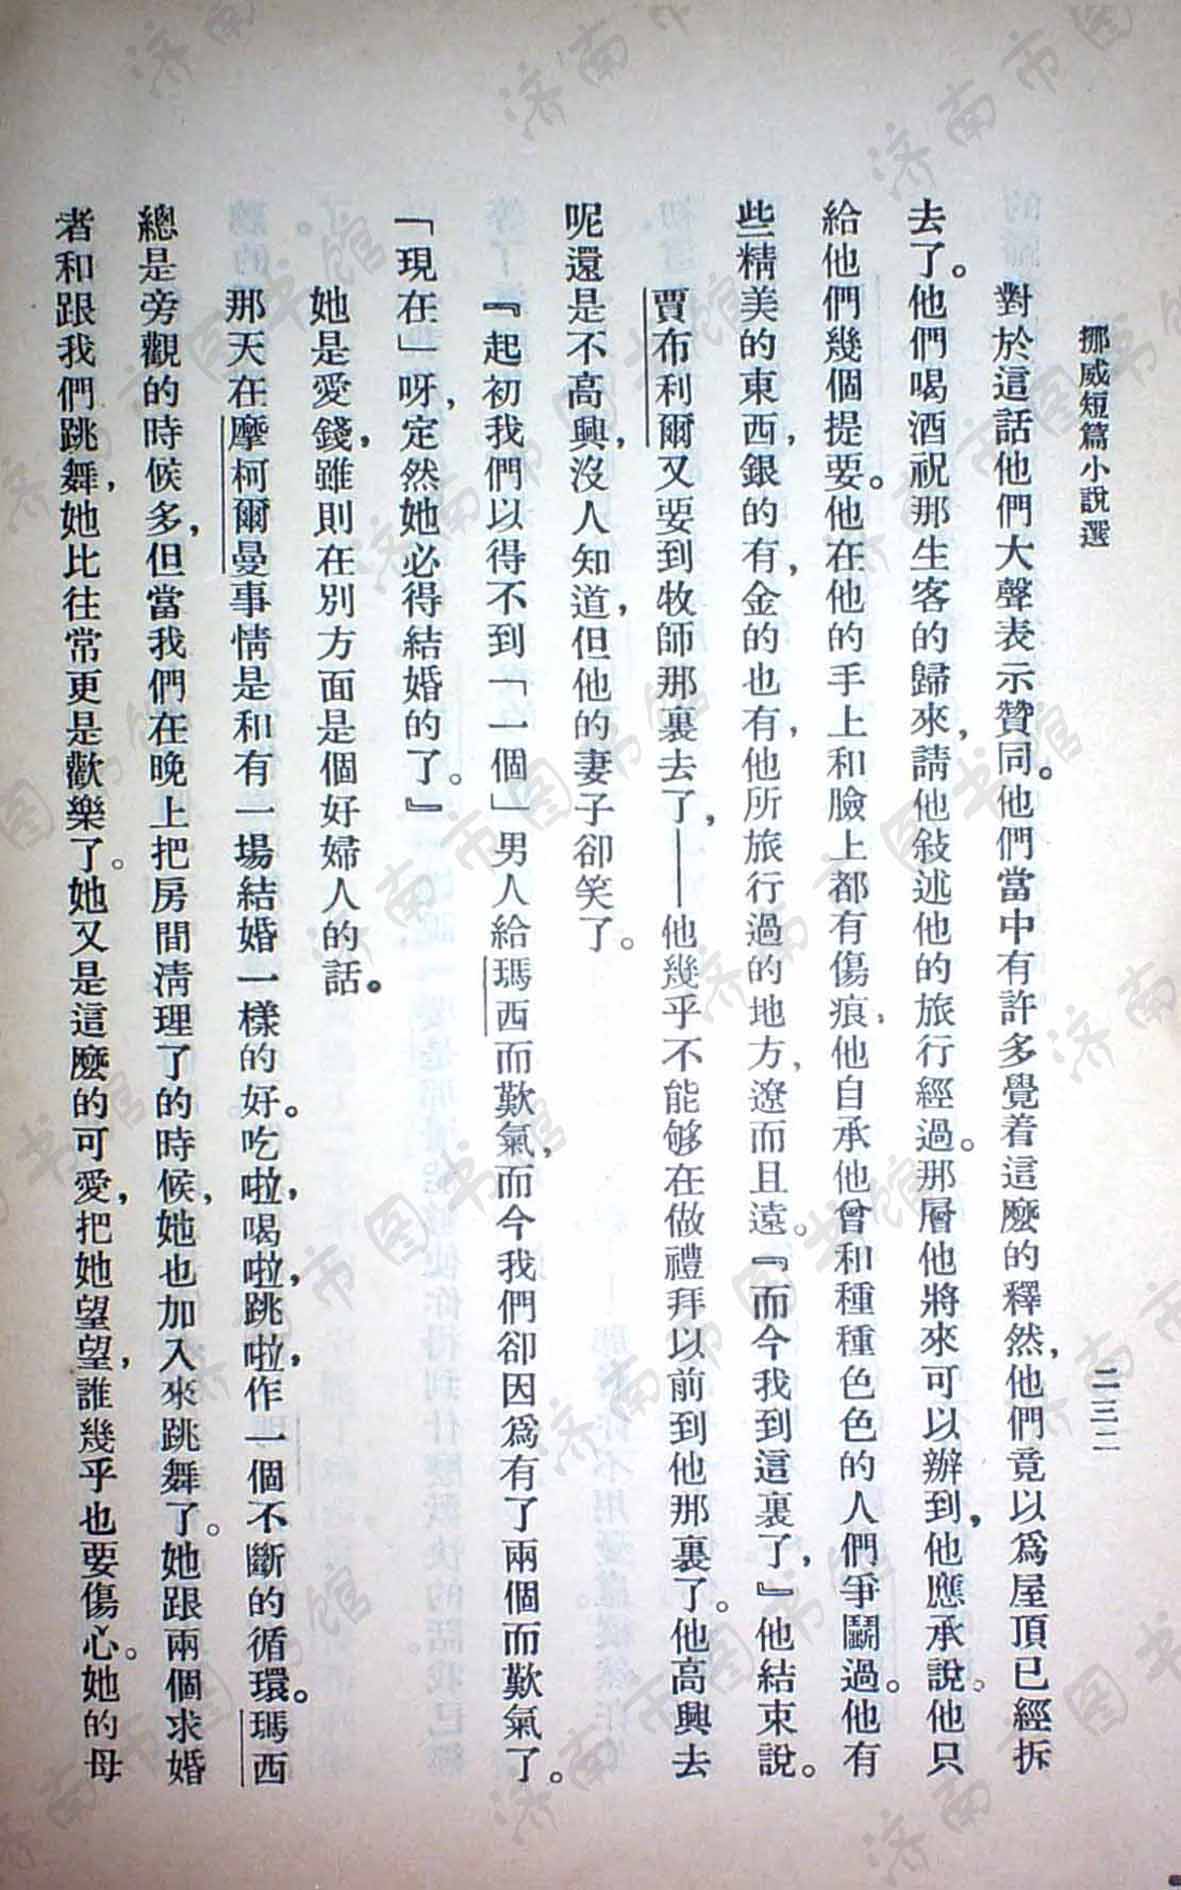 挪威短篇小說選
二三二
對於這話他們大聲表示贊同。他們當中有許多覺着這麼的釋然，他們竟以爲屋頂已經拆
去了。他們喝酒祝那生客的歸來，請他敍述他的旅行經過。那層他將來可以辦到，他應承說。他只
給他們幾個提要。他在他的手上和臉上都有傷痕，他自承他曾和種種色色的人們爭鬭過。他有
些精美的東西，銀的有，金的也有，他所旅行過的地方，遼而且遠。『而今我到這裏了，』他結束說。
賈布利爾又要到牧師那裏去了，——他幾乎不能够在做禮拜以前到他那裏了。他高興去
呢還是不高興，沒人知道，但他的妻子卻笑了。
『起初我們以得不到「一個」男人給瑪西而歎氣，而今我們卻因爲有了兩個而歎氣了。
「現在」呀，定然她必得結婚的了。』
她是愛錢，雖則在別方面是個好婦人的話。
那天在摩柯爾曼事情是和有一場結婚一樣的好。吃啦，喝啦，跳啦，作一個不斷的循環。瑪西
總是旁觀的時候多，但當我們在晚上把房間清理了的時候，她也加入來跳舞了。她跟兩個求婚
者和跟我們跳舞，她比往常更是歡樂了。她又是這麼的可愛，把她望望，誰幾乎也要傷心。她的母
济南市图书馆